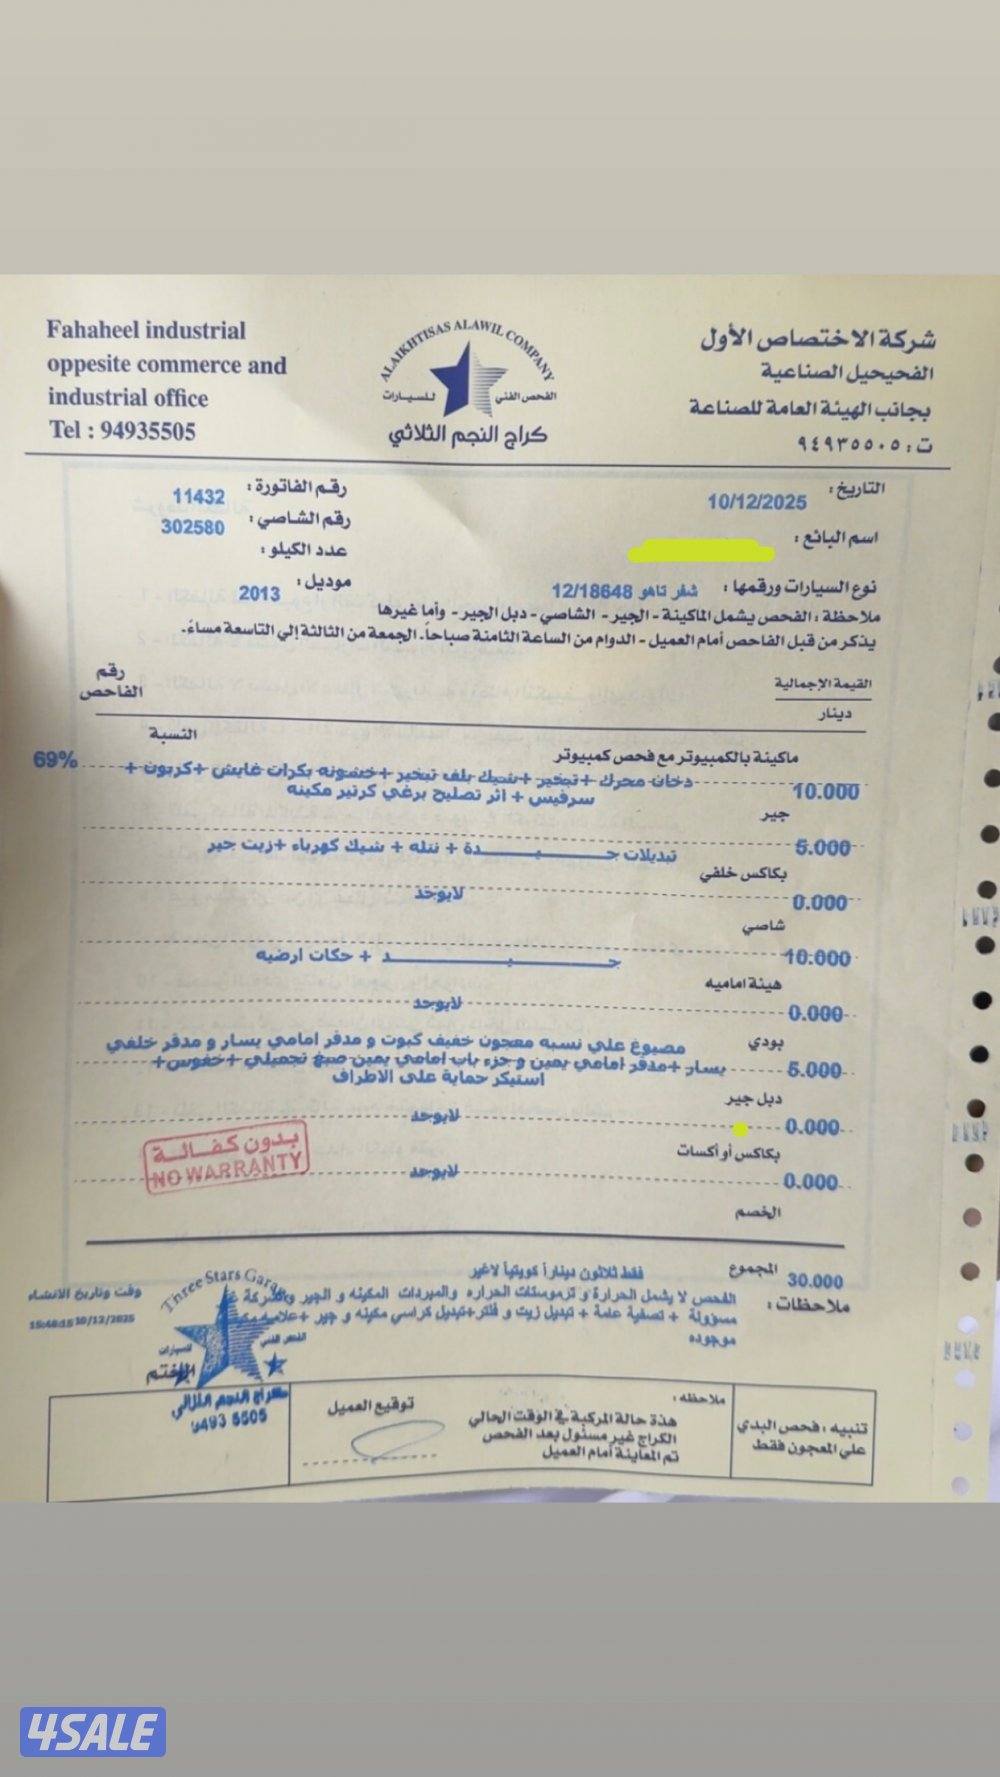 Fahaheel industrial
oppesite commerce and
industrial office
Tel : 94935505
ALAIKHTISAS ALAWIL COMPANY
الفحص الفني للسيارات
كراج النجم الثلاثي
شركة الاختصاص الأول
الفحيحيل الصناعية
بجانب الهيئة العامة للصناعة
ت : ٩٤٩٣٥٥٠٥
التاريخ : 10/12/2025
رقم الفاتورة : 11432
رقم الشاصي : 302580
اسم البائع :
عدد الكيلو :
نوع السيارات ورقمها : شفر تاهو 12/18648
موديل : 2013
ملاحظة : الفحص يشمل الماكينة - الجير - الشاصي - دبل الجير - وأما غيرها
يذكر من قبل الفاحص أمام العميل - الدوام من الساعة الثامنة صباحاً. الجمعة من الثالثة إلي التاسعة مساءً.
القيمة الإجمالية
رقم الفاحص
دينار
النسبة
ماكينة بالكمبيوتر مع فحص كمبيوتر
10.000 دخان محرك + تبخير + شبك بلف تبخير + خشونه بكرات غايش + كربون + 69%
سرفيس + اثر تصليح برغي كرتير مكينه
جير
5.000 تبديلات جـــيـــدة + نتله + شبك كهرباء + زيت جير
بكاكس خلفي
0.000 لايوجد
شاصي
10.000 جـــيـــد + حكات ارضيه
هيئة اماميه
0.000 لايوجد
بودي مصبوغ علي نسبه معجون خفيف كبوت و مدقر امامي يسار و مدقر خلفي
5.000 يسار + مدقر امامي يمين و جزء باب امامي يمين صبغ تجميلي + خفوس +
استيكر حماية على الاطراف
دبل جير
0.000 لايوجد
بكاكس أو أكسات
0.000 لايوجد
بدون كفالة
NO WARRANTY
الخصم
المجموع 30.000 فقط ثلاثون ديناراً كويتياً لاغير
ملاحظات : الفحص لا يشمل الحرارة و ترموستات الحراره والمبردات المكينه و الجير والشركة
مسؤولة + تصفية عامة + تبديل زيت و فلتر + تبديل كراسي مكينه و جير + علامه
موجوده
وقت وتاريخ الانشاء
15:48:15 10/12/2025
Three Stars Garage
الفحص الفني
للسيارات
الختم
كراج النجم الثلاثي
9493 5505
تنبيه : فحص البدي
علي المعجون فقط
ملاحظه :
هذة حالة المركبة في الوقت الحالي
الكراج غير مسئول بعد الفحص
تم المعاينة أمام العميل
توقيع العميل
4SALE